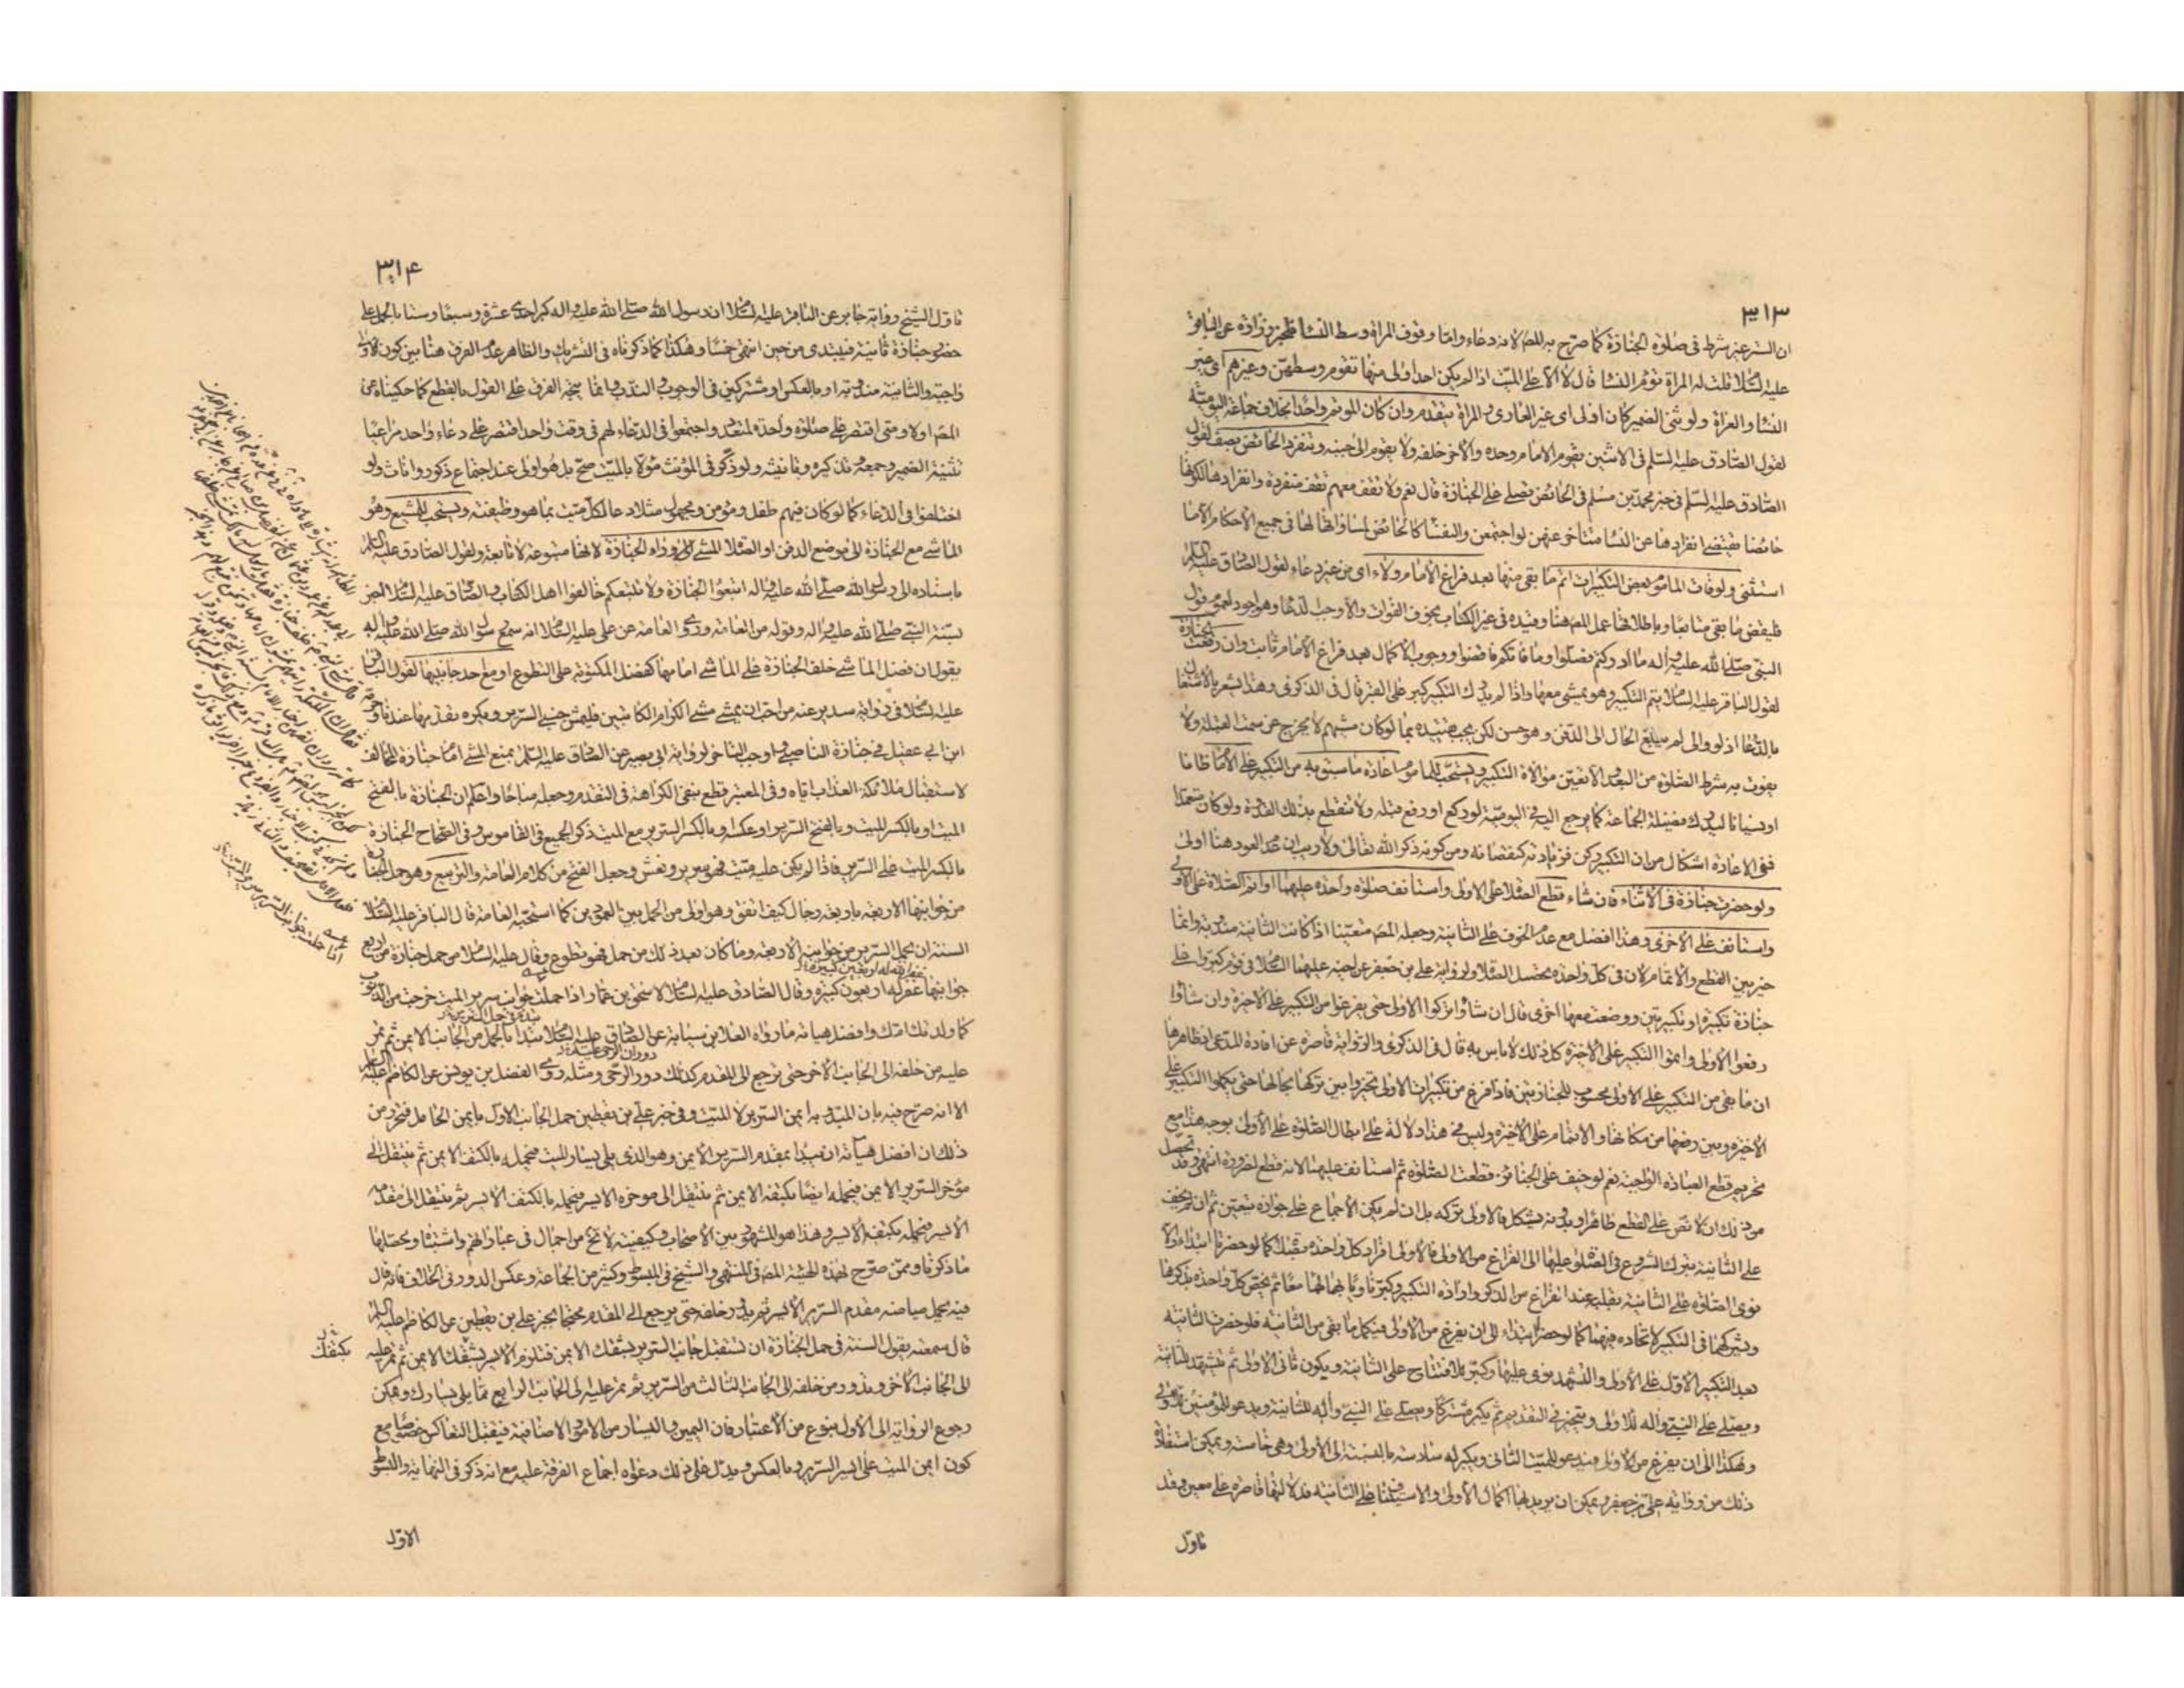 ٣١٣
ان الستر غير شرط فى صلوة الجنازة كما صرّح به المصـ لانه دعاء واما وقوف المراة وسط النساء فلخبر زرارة عن الباقر
عليه السّلام قلت له المراة تؤم النساء قال لا الا على الميّت اذا لم يكن احد اولى منها تقوم وسطهنّ وغيرهم اى غير
النساء والعراة ولو ثنى الضمير كان اولى اى غير العارى والمراة يتقدم وان كان المؤتم واحدا بخلاف جماعة اليوميّة
لقول الصّادق عليه السّلم فى الاثنين يقوم الامام وحده والاخر خلفه ولا يقوم الى جنبه وتنفرد الحائض بصف لقول
الصّادق عليه السّلم فى خبر محمّد بن مسلم فى الحائض تصلى على الجنازة قال نعم ولا تقف معهم تقف منفردة وانفرادها لكونها
حائضا يقتضى انفرادها عن النسا فتتاخر عنهن لو اجتمعن والنفسا كالحائض لمساواتها لها فى جميع الاحكام الا ما
استثنى ولو فات المأموم بعض التكبيرات اتم ما بقى منها بعد فراغ الامام ولاء اى من غير دعاء لقول الصّادق عليه السّلم
فليقض ما بقى متتابعا وباطلاقها عمل المصـ هنا وقيده فى غير الكتاب بخوف الفوات والا وجب الدّعا وهو اجود لعموم قول
النبى صلّى الله عليه واله ما ادركتم فصلّوا وما فاتكم فاقضوا ووجوب الاكمال بعد فراغ الامام ثابت وان رفعت الجنازة
لقول الباقر عليه السّلام يتم التكبير وهو يمشى معها واذا لم يدرك التكبير كبر على القبر قال فى الذكرى وهذا يشعر بالاشتغال
بالدّعا اذ لو والى لم يبلغ الحال الى الدّفن وهو حسن لكن يجب تقييده بما لو كان مشيهم لا يخرج عن سمت القبلة ولا
يفوت به شرط الصّلوة من البعد والا تعيّن موالاة التكبير ويستحبّ للماموم اعادة ما سبق به من التكبير على الامام ظانا
او نسيانا ليدرك فضيلة الجماعة كما يرجع اليه فى اليوميّة لو ركع او رفع قبله ولا تنقطع بذلك القدوة ولو كان متعمّدا
ففى الاعادة اشكال من ان التكبير ركن فزيادته كنقصانه ومن كونه ذكر الله تعالى ولا ريب ان عدم العود هنا اولى
ولو حضرت جنازة فى الاثناء فان شاء قطع الصّلاة على الاولى واستانف صلوة واحدة عليهما او اتم الصّلاة على الاولى
واستانف على الاخرى وهذا افضل مع عدم الخوف على الثانية وجعله المصـ متعيّنا اذا كانت الثانية مندوبة وانما
خيّر بين القطع والاتمام لان فى كلّ واحدة تحصل الصّلاة ولرواية على بن جعفر عن اخيه عليهما السّلام فى قوم كبّروا على
جنازة تكبيرة او تكبيرتين ووضعت معها اخرى قال ان شاؤا تركوا الاولى حتى يفرغوا من التكبير على الاخيرة وان شاؤا
رفعوا الاولى واتموا التكبير على الاخيرة كل ذلك لا باس به قال فى الذكرى والرّواية قاصرة عن افادة المدّعى اذ ظاهرها
ان ما بقى من التكبير على الاولى محسوب للجنازتين فاذا فرغ من تكبيرات الاولى تخيّروا بين تركها بحالها حتى يكملوا التكبير على
الاخيرة وبين رفعها من مكانها والاتمام على الاخيرة وليس فى هذا دلالة على ابطال الصّلوة على الاولى بوجه هذا مع
تحريم قطع العبادة الواجبة نعم لو خيف على الجنائز قطعت الصّلوة ثم استانف عليها لانه قطع لضرورة انتهى وقد تحصل
من ذلك ان لا نصّ على القطع ظاهرا وبدونه يشكل فالاولى تركه بل ان لم يكن الاجماع على جوازه تعيّن ثم ان لم يخف
على الثانية يترك الشروع فى الصّلاة عليها الى الفراغ من الاولى فالاولى افراد كل واحدة بصلوة كما لو حضرتا ابتداء والا
نوى الصّلوة على الثانية بقلبه عند انفراغ من الذكر وارادة التكبير وكبّر ناويا بها لهما معا ثم يختص كلّ واحدة بذكرها
ويشركهما فى التكبير لاتحاده فيهما كما لو حضرتا ابتداء الى ان يفرغ من الاولى فيكمل ما بقى من الثانية فلو حضرت الثانية
بعد التكبير الاوّل على الاولى والتشهد نوى عليها وكبّر للافتتاح على الثانية ويكون ثانى الاولى ثم يتشهد للثانية
ويصلى على النبى واله للاولى ويتخيّر فى التقديم ثم يكبر مشتركا ويصلى على النبى واله للثانية ويدعو للمؤمنين للاولى
وهكذا الى ان يفرغ من الاولى فيدعو للميّت الثانى ويكبر له سادسة بالنسبة الى الاولى وهى خامسة ويمكن استفادة
ذلك من رواية على بن جعفر ويمكن ان يريد بها اكمال الاولى والاستيناف على الثانية فدلالتها قاصرة على معين وقد
تاول
٣١۴
تاول الشيخ رواية جابر عن الباقر عليه السّلام ان رسول الله صلّى الله عليه واله كبر احدى عشرة وسبعا وستا بالحمل على
حضور جنازة ثانية فيبتدى من حين انتهى خمسا وهكذا كما ذكرناه فى التشريك والظاهر عدم الفرق هنا بين كون الاولى
واجبة والثانية مندوبة او بالعكس او مشتركين فى الوجوب والندب وانما يتجه الفرق على القول بالقطع كما حكيناه عن
المصـ اولا ومتى اقتصر على صلوة واحدة لمتعدد واجتمعوا فى الدعاء لهم فى وقت واحد اقتصر على دعاء واحد مراعيا
تثنية الضمير وجمعه وتذكيره وتانيثه ولو ذكّر فى المؤنث مؤولا بالميّت صحّ بل هو اولى عند اجتماع ذكور واناث ولو
اختلفوا فى الدعاء كما لو كان فيهم طفل ومؤمن ومجهول مثلا دعا لكل ميّت بما هو وظيفته ويستحب للمشيع وهو
الماشى مع الجنازة الى موضع الدفن او الصّلاة المشى وراء الجنازة لانها متبوعة لا تابعة ولقول الصادق عليه السّلم
باسناده الى رسول الله صلّى الله عليه واله اتبعوا الجنازة ولا تتبعكم خالفوا اهل الكتاب
بقول ان فضل الماشى خلف الجنازة على الماشى امامها كفضل المكتوبة على التطوع او مع احد جانبيها لقول الباقر
عليه السّلام فى رواية سدير عنه من احبّ ان يمشى مشى الكرام الكاتبين فليمش جنبى السّرير ويكره تقدمها عندنا واوجب
ابن ابى عقيل فى جنازة الناصبى لرواية ابى بصير عن الصّادق عليه السّلم بمنع المشى امام جنازة المخالف
لاستقبال ملائكة العذاب ايّاه وفى المعتبر قطع بنفى الكراهة فى التقدم وجعله مباحا واعلم ان الجنازة بالفتح
الميّت او بالكسر الميّت وبالفتح السّرير او عكسه او بالكسر السّرير مع الميّت ذكر الجميع فى القاموس وفى الصّحاح الجنازة
بالكسر الميّت على السّرير فاذا لم يكن عليه ميّت فهو سرير ونعش وجعل الفتح من كلام العامة والتربيع وهو حمل الجنازة
من جوانبها الاربعة باربعة رجال كيف اتفق وهو اولى من الحمل بين العمودين كما استحبّه العامة قال الباقر عليه السّلام
السنة ان يحمل السّرير من جوانبه الاربعة وما كان بعد ذلك من حمل فهو تطوع وقال عليه السّلام من حمل جنازة من اربع
جوانبها غفر له اربعون كبيرة وقال الصّادق عليه السّلام لاسحق بن عمار اذا حملت جوانب سرير الميت خرجت من الذنوب
كما ولدتك امك وافضل هيئاته ما رواه العلا بن سيابة عن الصّادق عليه السّلام تبدأ بالحمل من الجانب الايمن ثم تمر
عليه من خلفه الى الجانب الاخر حتى ترجع الى المقدم كذلك دور الرّحى ومثله روى الفضل بن يونس عن الكاظم عليه السّلم
الا انه صرّح فيه بان المبدوبه ايمن السّرير لا الميّت وفى خبر على بن يقطين حمل الجانب الاوّل بايمن الحامل فتحرّر من
ذلك ان افضل هيئاته ان يبدأ بمقدم السّرير الايمن وهو الذى يلى يسار الميّت فيحمله بالكتف الايمن ثم ينتقل الى
مؤخر السّرير الايمن فيحمله ايضا بكتفه الايمن ثم ينتقل الى موخره الايسر فيحمله بالكتف الايسر ثم ينتقل الى مقدمه
الايسر فيحمله بكتفه الايسر وهذا هو المشهور بين الاصحاب وكيفيته لا تخ من اجمال فى عباراتهم واشتباه ويحصلها
ما ذكرناه وممّن صرّح بهذه الهيئة المصـ فى المنتهى والشيخ فى المبسوط وكثير من الجماعة وعكس الدور فى الخلاف فانه قال
فيه يحمل ميامنه مقدم السّرير الايسر ثم يدور خلفه حتى يرجع الى المقدم محتجا بخبر على بن يقطين عن الكاظم عليه السّلم
قال سمعته يقول السنة فى حمل الجنازة ان تستقبل جانب السّرير بشقك الايمن فتلزم الايسر بشقّك الايمن ثم تمر عليه
الى الجانب الاخر وتدور من خلفه الى الجانب الثالث من السّرير ثم تمر عليه الى الجانب الرابع مما يلى يسارك ويمكن
رجوع الرواية الى الاول بنوع من الاعتبار فان اليمين واليسار من الامور الاضافية فيقبل التعاكس خصوصا مع
كون ايمن الميّت على ايسر السّرير وبالعكس ويدلّ على ذلك دعواه اجماع الفرقة عليه مع انه ذكر فى النهاية والمبسوط
بكتفك
الاوّل